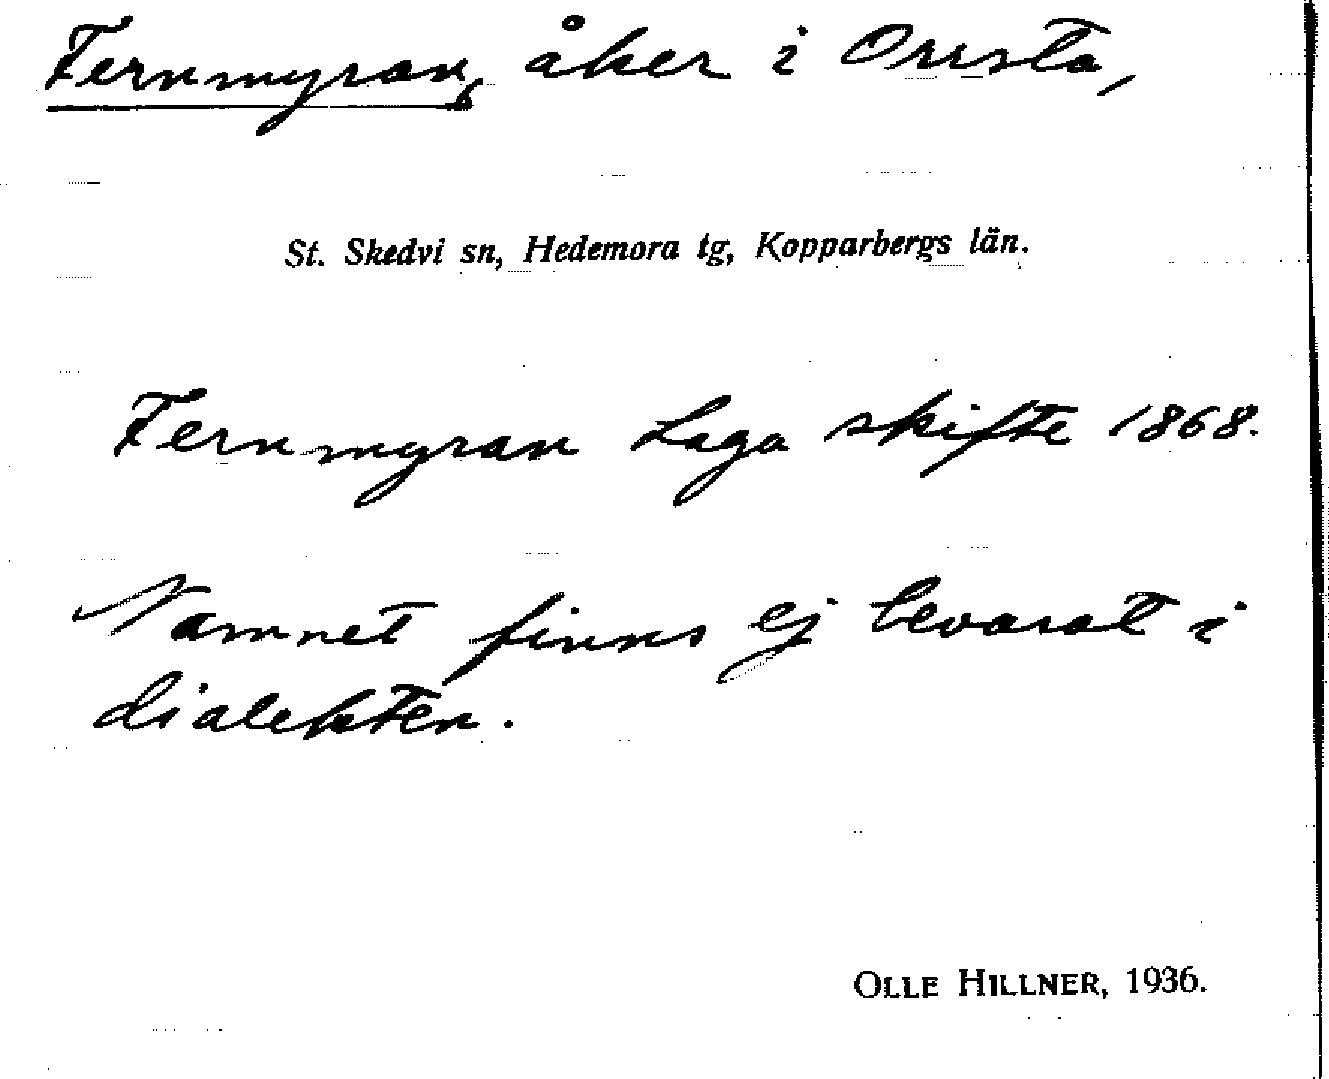 Fernmyran, åker i Onsta,
St. Skedvi sn, Hedemora tg, Kopparbergs län.
Fernmyran Laga skifte 1868.
Namnet finns ej bevarat i
dialekten.
OLLE HILLNER, 1936.